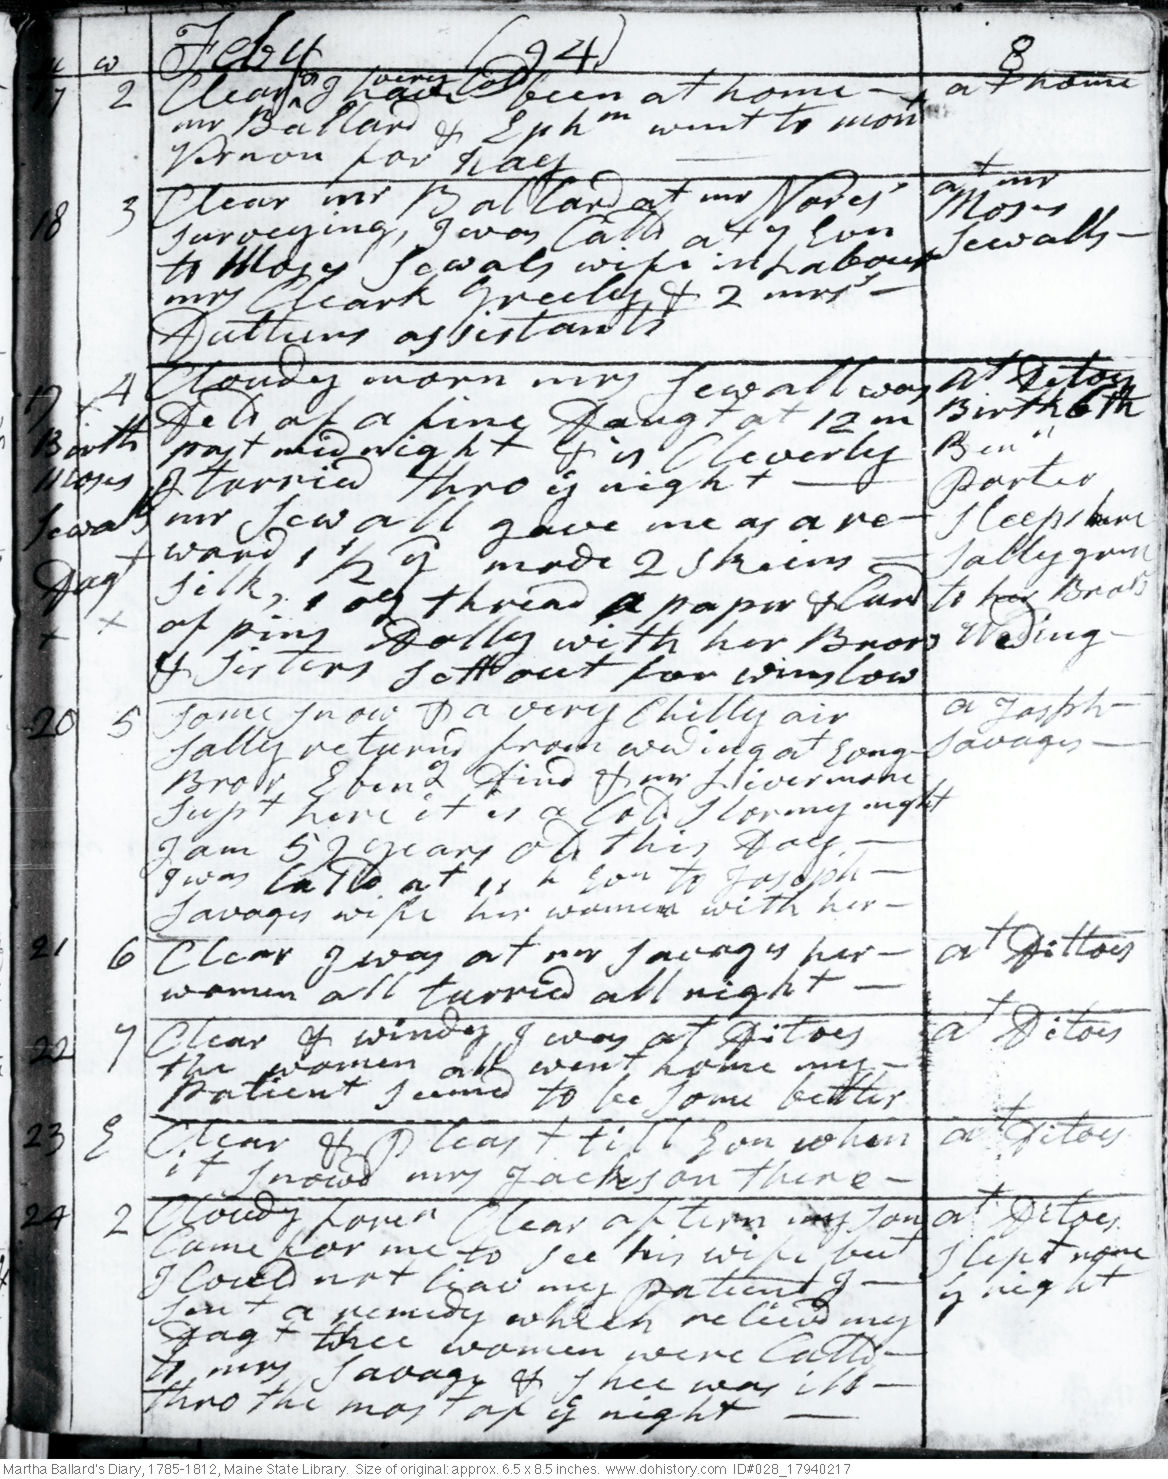 m w Feby (94) 8
17 2 Clear & very Cold I have been at home – at home
mr Ballard & Ephm went to mont
Vernon for hay
18 3 Clear mr Ballard at mr Nores' at mr
surveying, I was Calld at y Evn Moses
to Moses Sewals wife in Labour Sewalls –
mrs Cleark Greeley & 2 mrs –
Duttuns assistants
19 4 Cloudy morn mrs Sewall was at Ditoes
Delt of a fine Daugt at 12 m Birth 6th
Birth past midnight & is Cleverly Benn
Moses I tarried thro y night – Porter
Sewalls mr Sewall gave me as a re– sleeps here
ward 1 1/2 y mode 2 skeins – Sally gone
Dagt silk, 1 oz thread a paper & Card to her Broars
x x of pins Dolly with her Broars Weding –
& sisters sett out for winslow
20 5 some snow & a very Chilly air a Joseph –
Sally returnd from weding at Evng– Savages –
Bror Ebenz and mr Livermore
supt here it is a Cold stormy night
I am 59 years old this Day –
I was Calld at 11 h Evn to Joseph –
Savages wife her women with her –
21 6 Clear I was at mr Savages her – at Dittoes
women all tarried all night –
22 7 Clear & windy I was at Ditoes at Ditoes
the women all went home my –
Patient seemd to be some better
23 E Clear & Pleast till Evn when at Ditoes
it snowd mrs Jackson there –
24 2 Cloudy foren Clear aftern my son at Ditoes
Came for me to see his wife but slept none
I Could not leav my patient I – y night
sent a remedy which relievd my
Dagt thee women were Calld –
to mrs Savage & shee was ill –
thro the most of y night –
Martha Ballard's Diary, 1785-1812, Maine State Library. Size of original: approx. 6.5 x 8.5 inches. www.dohistory.com ID#028_17940217